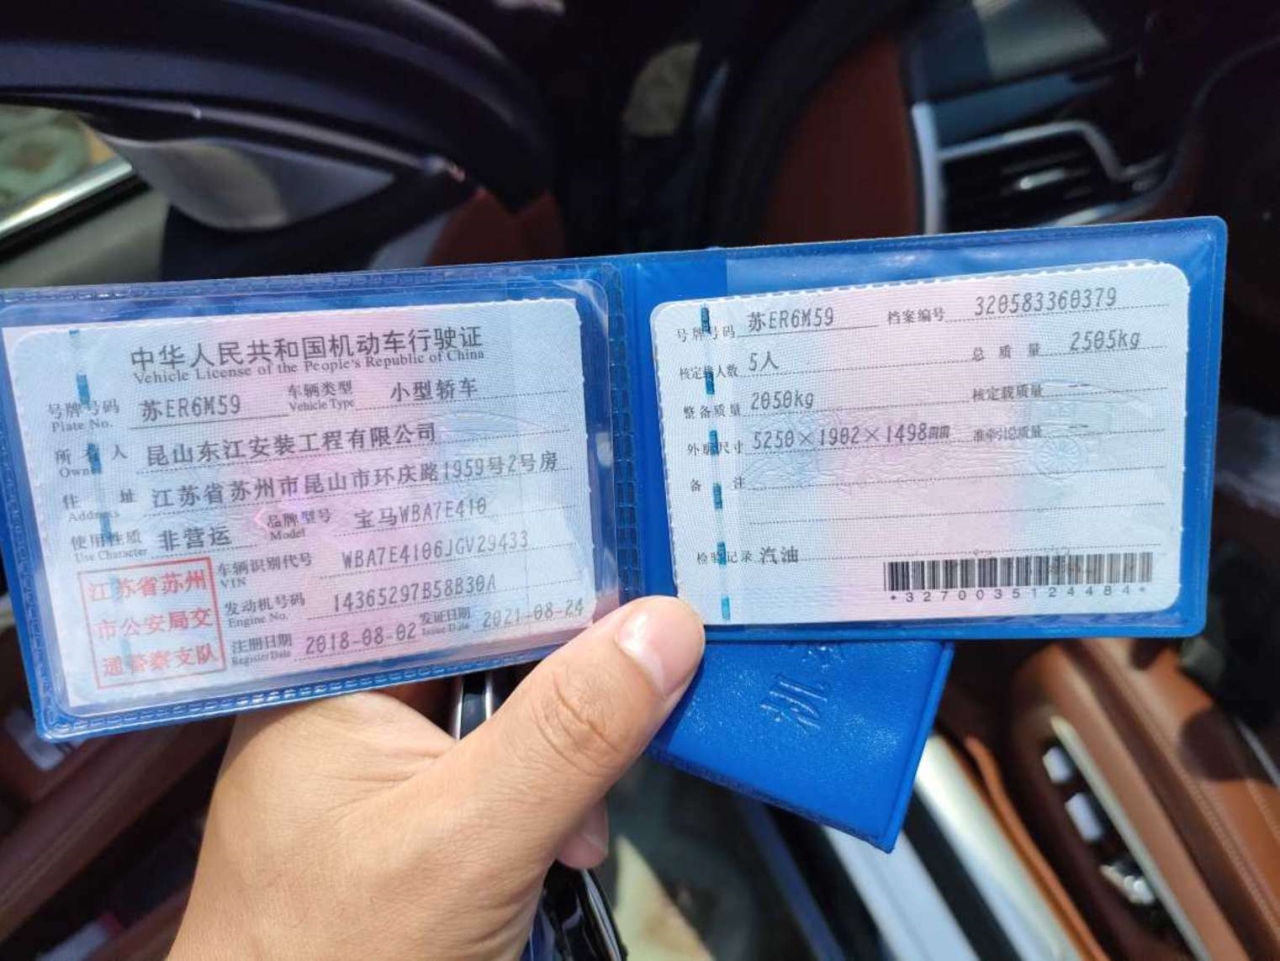 中华人民共和国机动车行驶证
Vehicle License of the People's Republic of China
号牌号码 Plate No. 苏ER6M59 车辆类型 Vehicle Type 小型轿车
所有人 Owner 昆山东江安装工程有限公司
住址 Address 江苏省苏州市昆山市环庆路1959号2号房
使用性质 Use Character 非营运 品牌型号 Model 宝马WBA7E410
车辆识别代号 VIN WBA7E4106JGV29433
发动机号码 Engine No. 14365297B58B30A
注册日期 Register Date 2018-08-02 发证日期 Issue Date 2021-08-24
江苏省苏州
市公安局交
通警察支队
号牌号码 苏ER6M59 档案编号 320583360379
核定载人数 5人 总质量 2505kg
整备质量 2050kg 核定载质量
外廓尺寸 5250×1902×1498mm 准牵引总质量 --
备注
检验记录 汽油
*3270035124484*